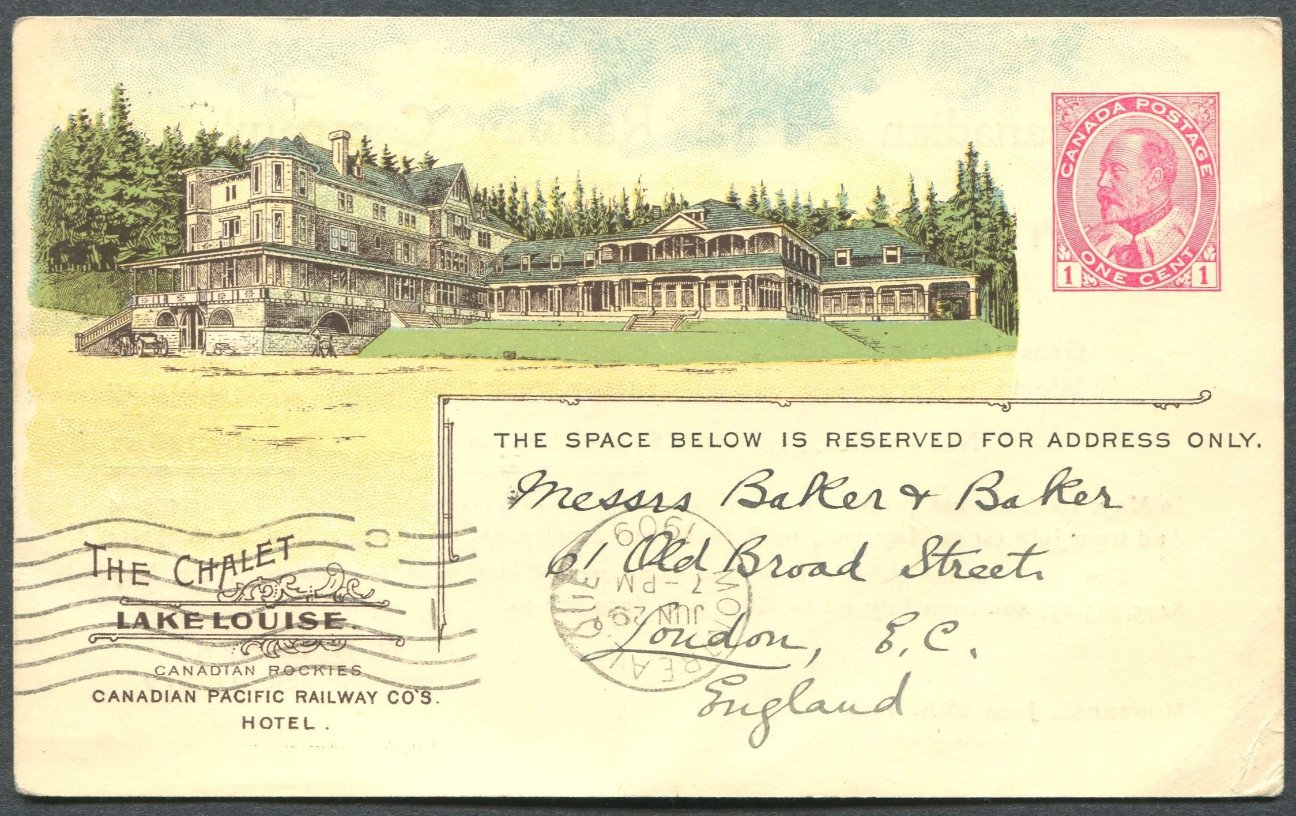 CANADA POSTAGE
1 ONE CENT 1
THE SPACE BELOW IS RESERVED FOR ADDRESS ONLY.
Messrs Baker & Baker
61 Old Broad Street
London, E.C.
England
MONTREAL
JUN 29
7-PM
1909
THE CHALET
LAKE LOUISE.
CANADIAN ROCKIES
CANADIAN PACIFIC RAILWAY CO'S.
HOTEL.